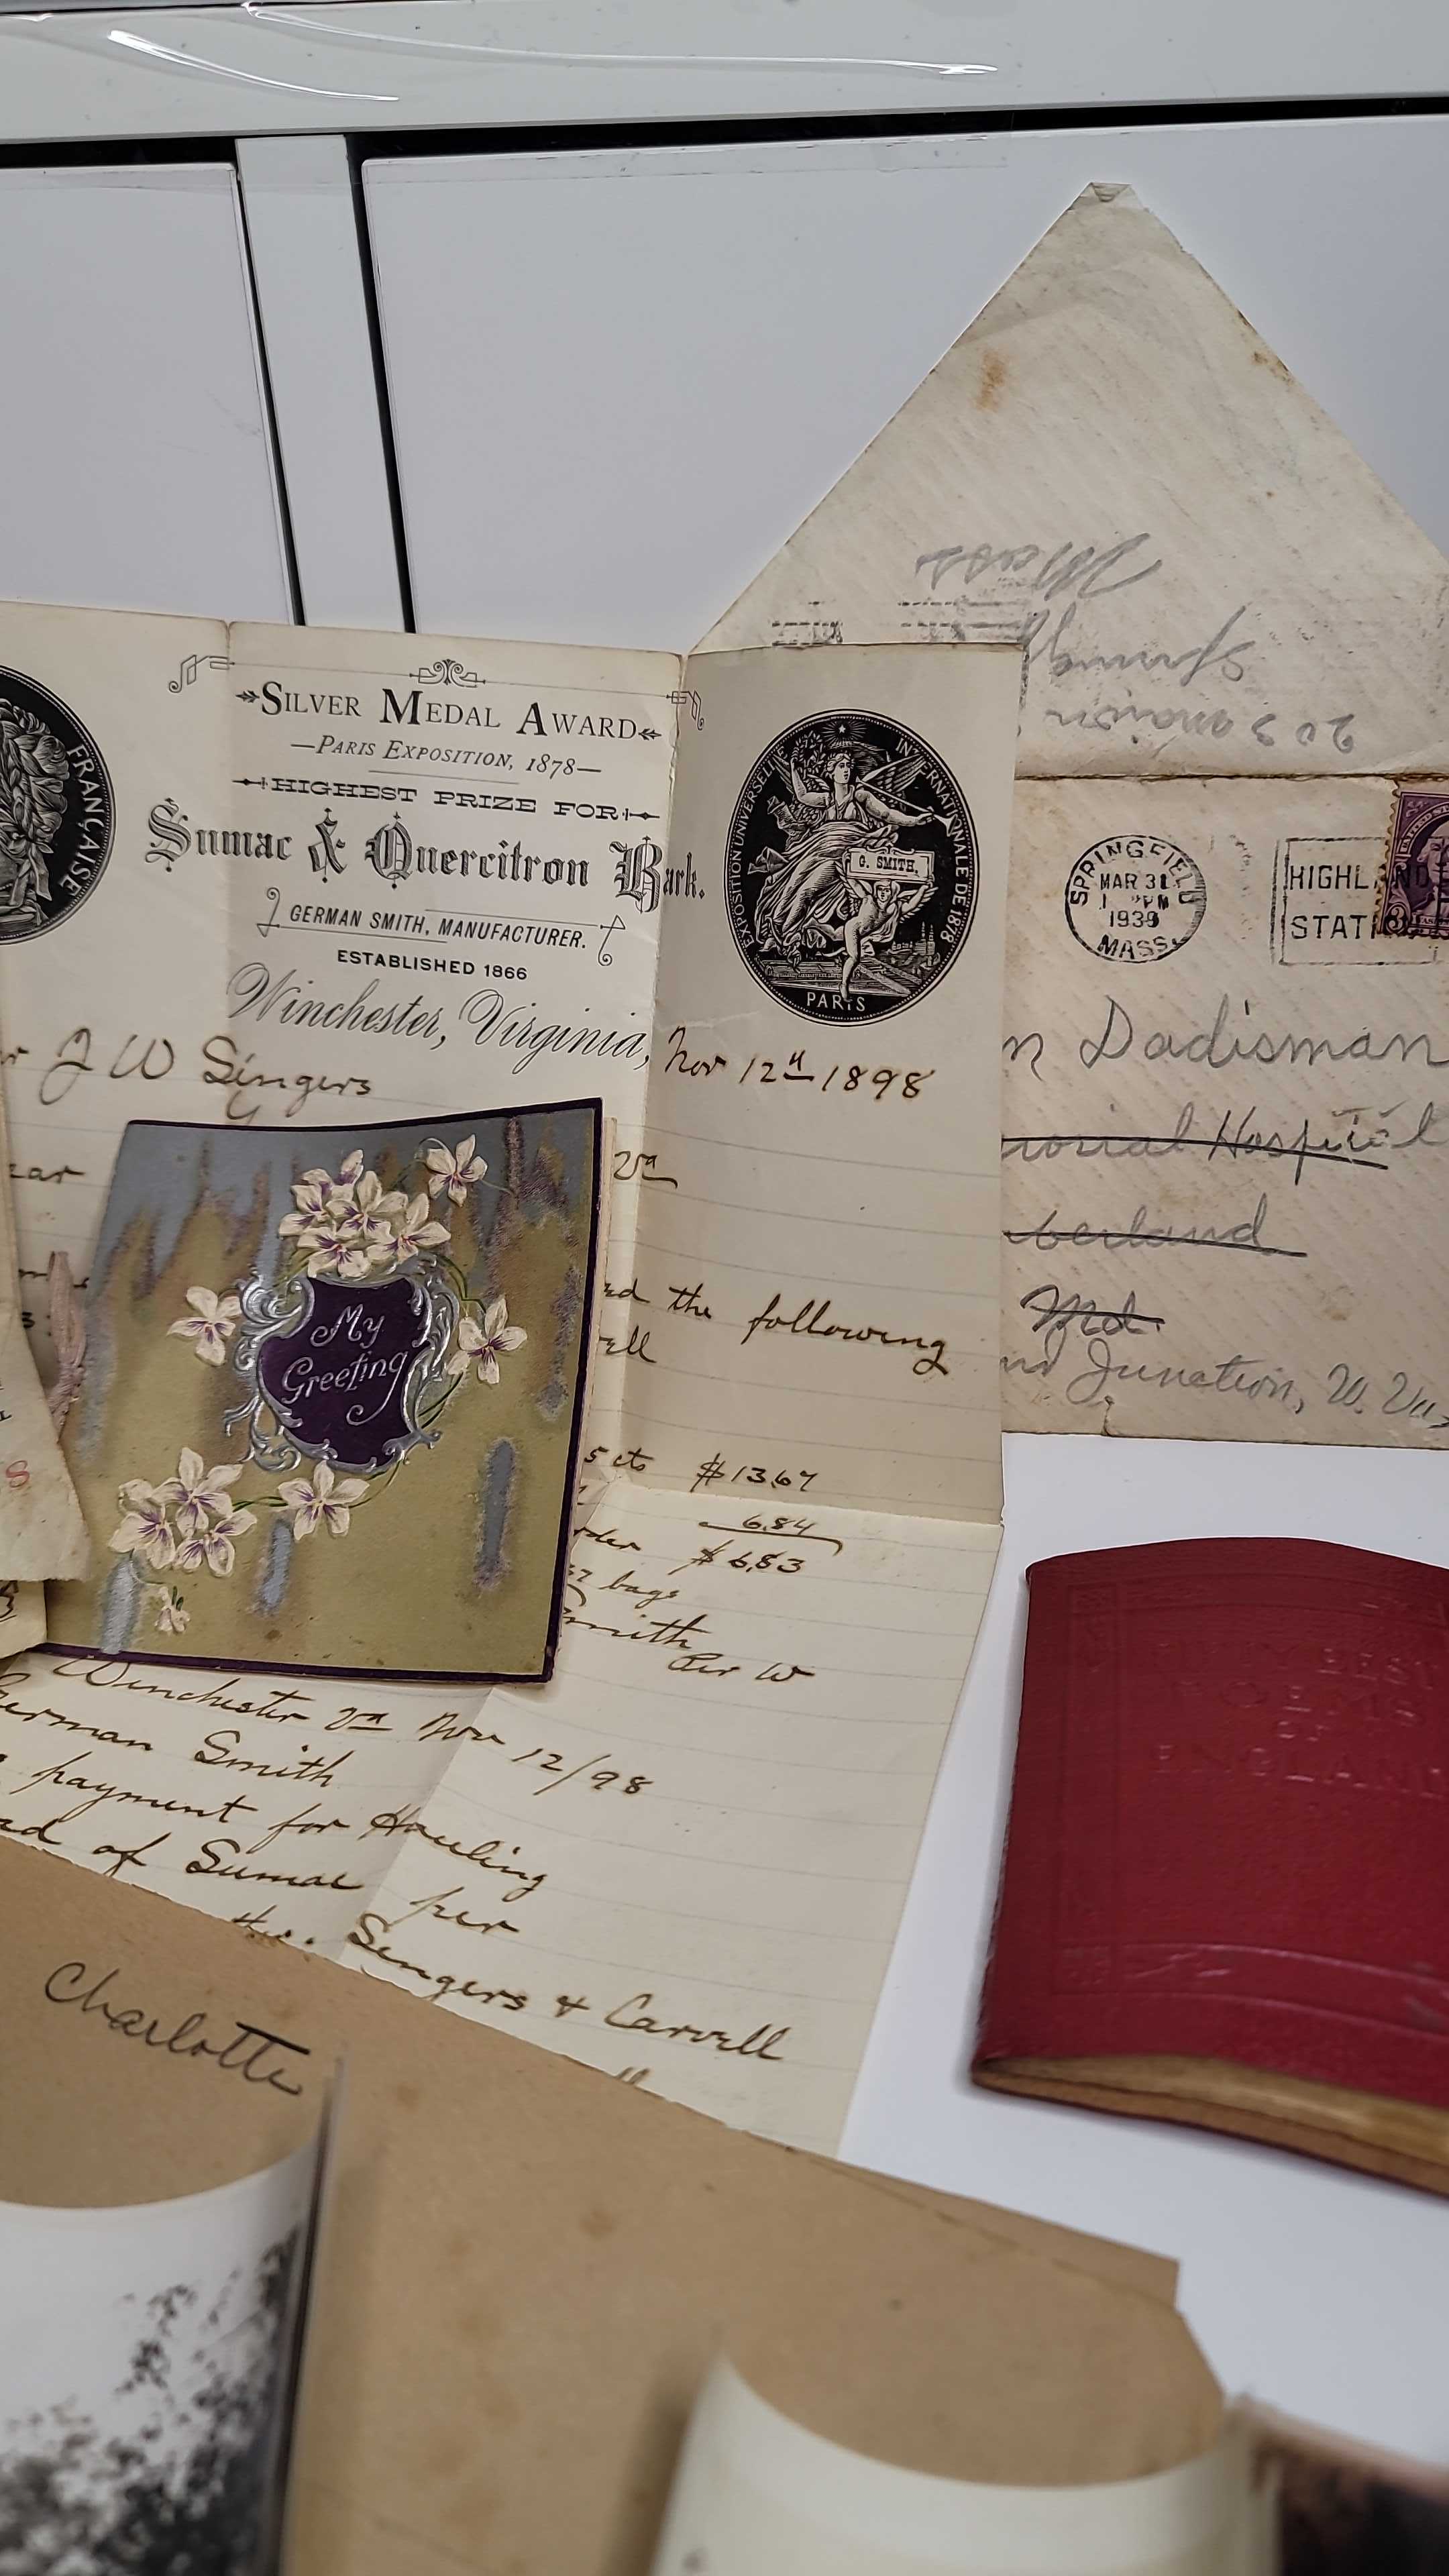 SILVER MEDAL AWARD
—PARIS EXPOSITION, 1878—
HIGHEST PRIZE FOR
Sumac & Quercitron Bark.
GERMAN SMITH, MANUFACTURER.
ESTABLISHED 1866
Winchester, Virginia, Nov 12th 1898
FRANÇAISE
EXPOSITION UNIVERSELLE INTERNATIONALE DE 1878
G. SMITH,
PARIS
J W Singers
ear
Va
ed the following
ell
5 cts $13.67
6.84
rder $6.83
bags
Smith
Per W
Winchester Va Nov 12/98
German Smith
payment for Hauling
ad of Sumac per
Singers & Carvell
My
Greeting
203 Marion
Spring
Mass
SPRINGFIELD
MAR 31
1 PM
1939
MASS.
HIGHLAND
STATI
n Dadisman
morial Hospital
berland
Md.
nd Junction, W. Va,
BEST
POEMS
OF
ENGLAND
Charlotte
S